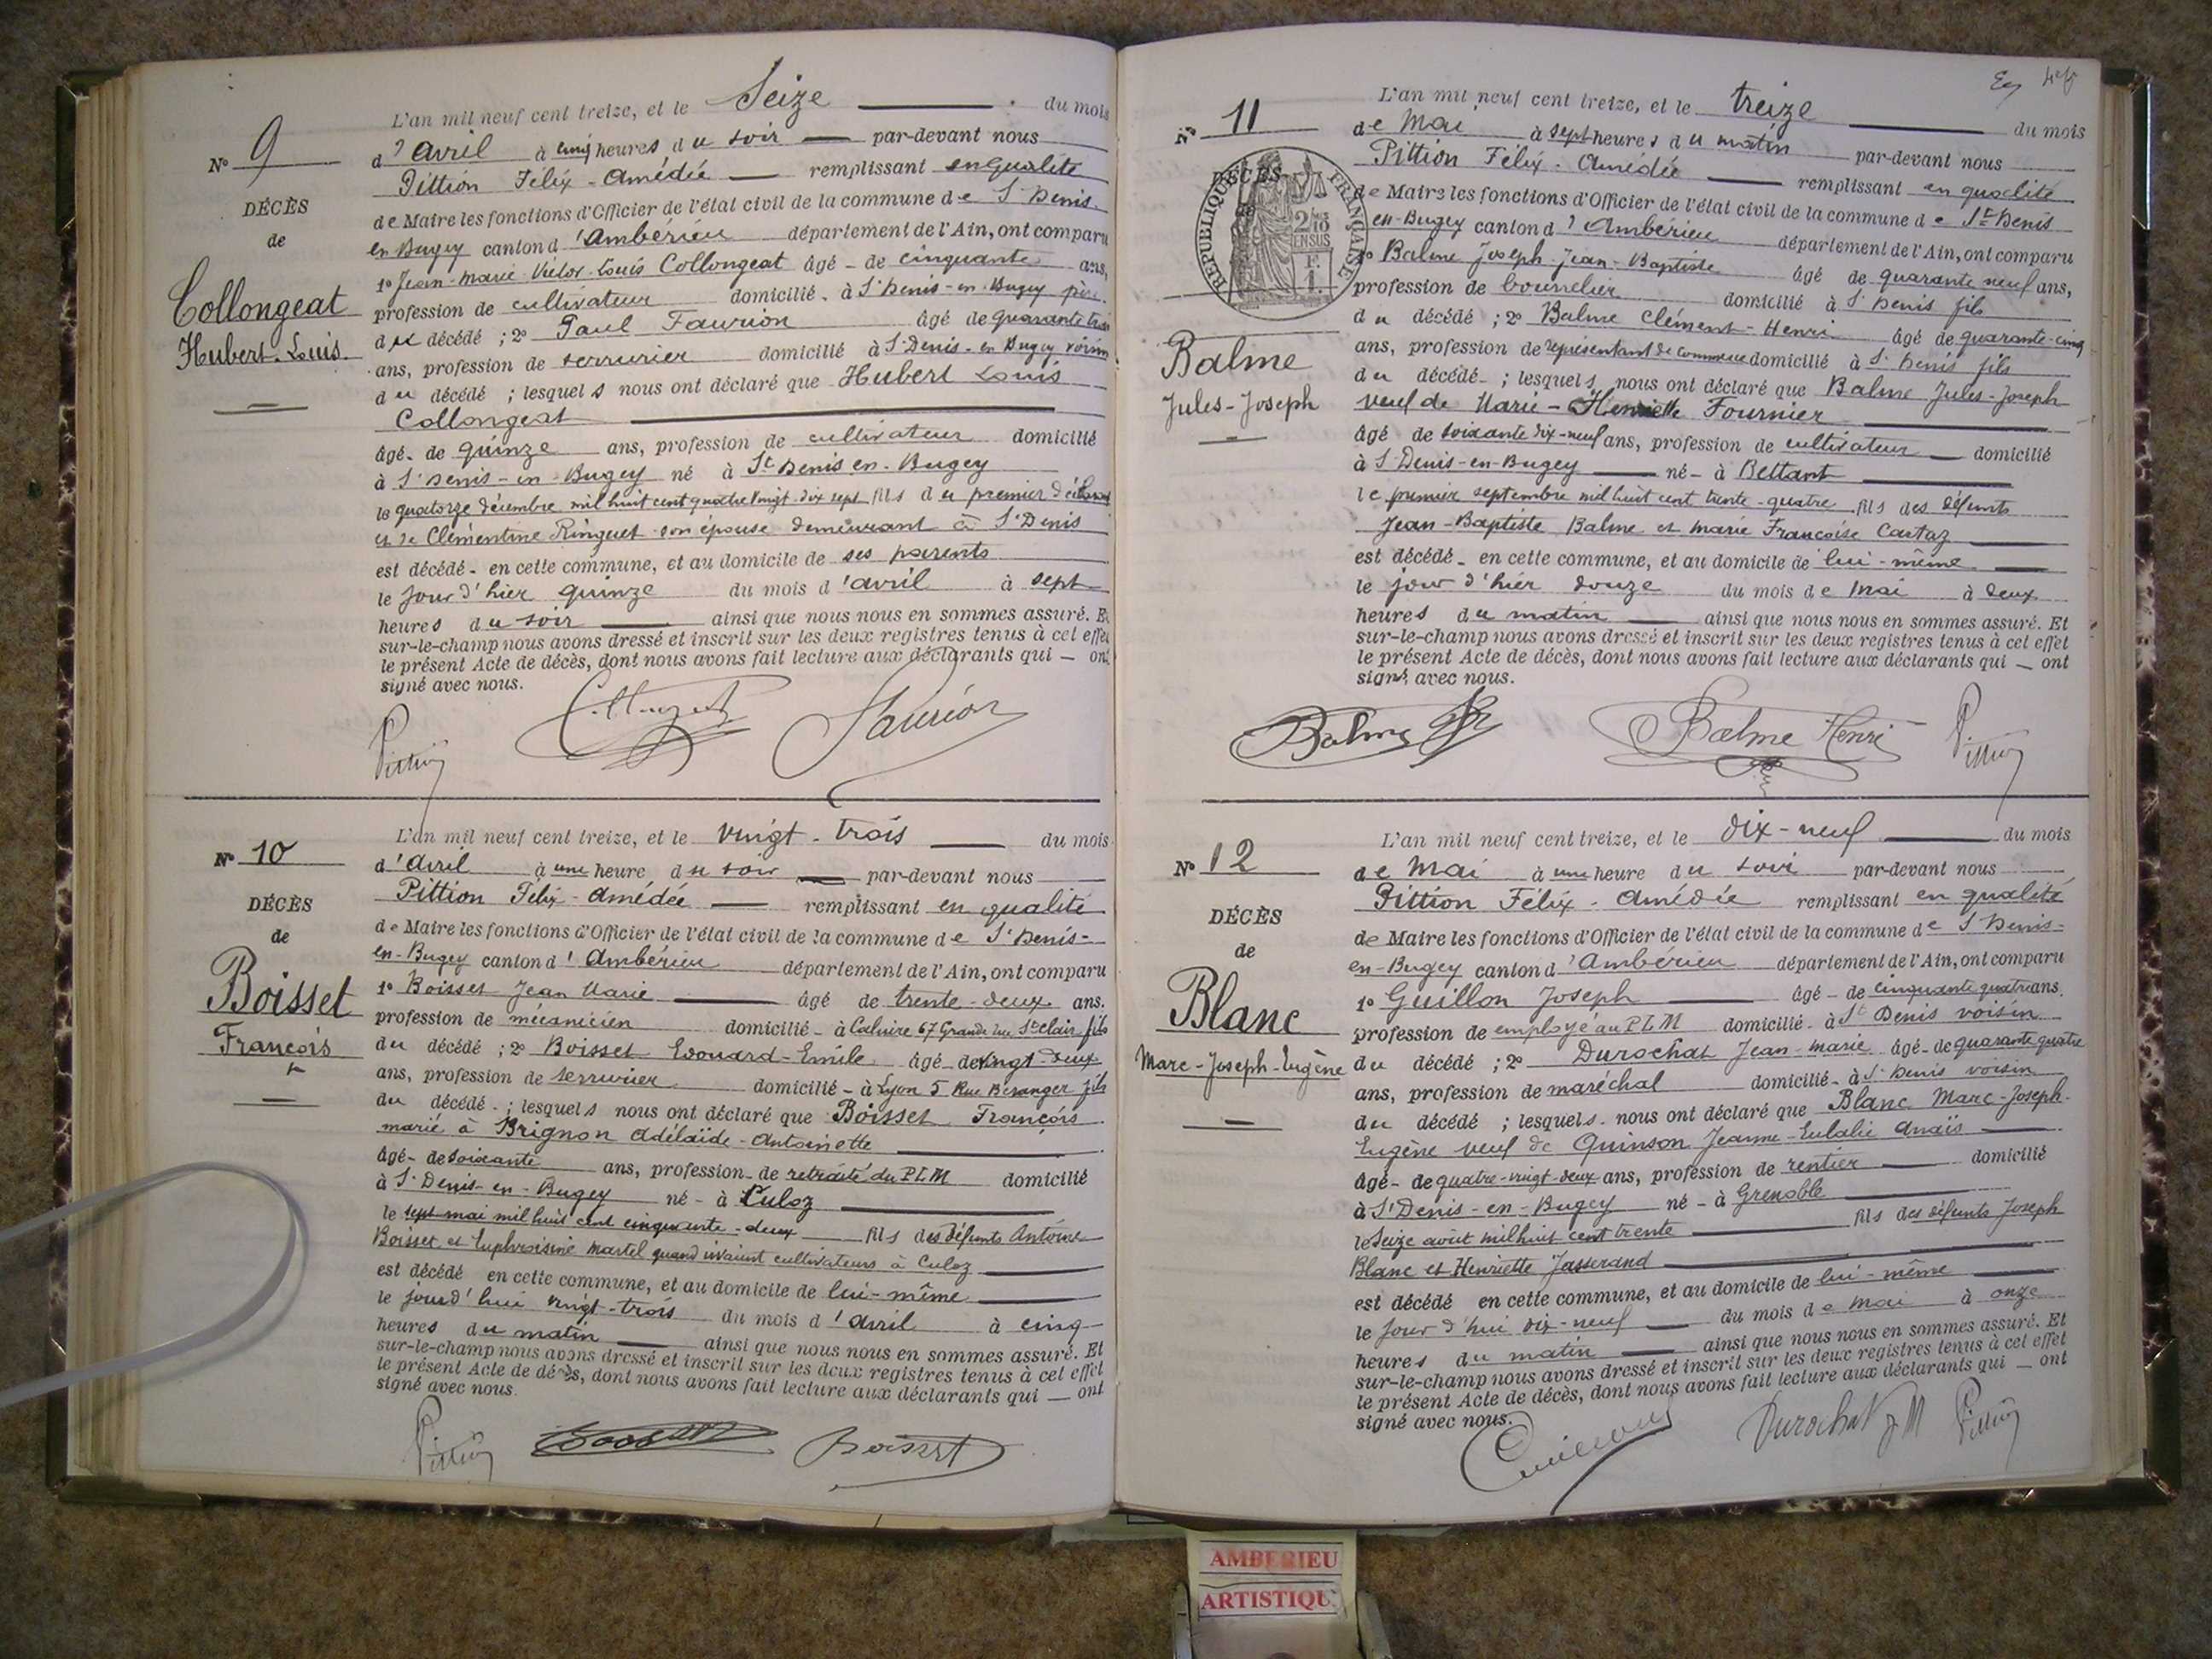 L'an mil neuf cent treize, et le Seize du mois
N° 9
d'avril à cinq heures du soir par-devant nous
Pittion Félix-Amédée remplissant en qualité
DÉCÈS
de Maire les fonctions d'Officier de l'état civil de la commune de St Denis-
de
en Bugey canton d'Ambérieu département de l'Ain, ont comparu
1° Jean-Marie-Victor-Louis Collongeat âgé de cinquante ans,
Collongeat
profession de cultivateur domicilié à St Denis-en-Bugey père
Hubert-Louis
du décédé ; 2° Paul Faurion âgé de quarante trois
ans, profession de serrurier domicilié à St Denis-en Bugey voisin
du décédé ; lesquels nous ont déclaré que Hubert Louis
Collongeat
âgé de quinze ans, profession de cultivateur domicilié
à St Denis-en-Bugey né à St Denis en-Bugey
le quatorze décembre mil huit cent quatre vingt-dix sept fils du premier déclarant
et de Clémentine Ringuet son épouse demeurant à St Denis
est décédé en cette commune, et au domicile de ses parents
le jour d'hier quinze du mois d'avril à sept
heures du soir ainsi que nous nous en sommes assuré. Et
sur-le-champ nous avons dressé et inscrit sur les deux registres tenus à cet effet
le présent Acte de décès, dont nous avons fait lecture aux déclarants qui ont
signé avec nous.
Pittion Collongeat Faurion
L'an mil neuf cent treize, et le vingt-trois du mois
N° 10
d'avril à une heure du soir par-devant nous
Pittion Félix-Amédée remplissant en qualité
DÉCÈS
de Maire les fonctions d'Officier de l'état civil de la commune de St Denis-
de
en-Bugey canton d'Ambérieu département de l'Ain, ont comparu
Boisset
1° Boisset Jean Marie âgé de trente-deux ans.
profession de mécanicien domicilié à Caluire 67 Grande rue St clair fils
François
du décédé ; 2° Boisset Edouard-Emile âgé de vingt-deux
ans, profession de serrurier domicilié à Lyon 5 Rue Béranger fils
du décédé ; lesquels nous ont déclaré que Boisset François
marié à Brignon Adélaïde-Antoinette
âgé de soixante ans, profession de retraité du PLM domicilié
à St Denis-en-Bugey né à Culoz
le sept mai mil huit cent cinquante-deux fils des défunts Antoine
Boisset et Euphroisine Martel quand vivaient cultivateurs à Culoz
est décédé en cette commune, et au domicile de lui-même
le jourd'hui vingt-trois du mois d'avril à cinq
heures du matin ainsi que nous nous en sommes assuré. Et
sur-le-champ nous avons dressé et inscrit sur les deux registres tenus à cet effet
le présent Acte de décès, dont nous avons fait lecture aux déclarants qui ont
signé avec nous.
Pittion Boisset Boisset
L'an mil neuf cent treize, et le treize du mois
N° 11
de Mai à sept heures du matin par-devant nous
Pittion Félix-Amédée remplissant en qualité
DÉCÈS
RÉPUBLIQUE FRANÇAISE
de Maire les fonctions d'Officier de l'état civil de la commune de St Denis
en-Bugey canton d'Ambérieu département de l'Ain, ont comparu
1° Balme Joseph-Jean-Baptiste âgé de quarante neuf ans,
profession de bourrelier domicilié à St Denis fils
du décédé ; 2° Balme Clément-Henri âgé de quarante-cinq
Balme
ans, profession de représentant de commerce domicilié à St Denis fils
Jules-Joseph
du décédé ; lesquels nous ont déclaré que Balme Jules-Joseph
veuf de Marie-Henriette Fournier
âgé de soixante dix-neuf ans, profession de cultivateur domicilié
à St Denis-en-Bugey né à Bettant
le premier septembre mil huit cent trente-quatre fils des défunts
Jean-Baptiste Balme et Marie Françoise Cartaz
est décédé en cette commune, et au domicile de lui-même
le jour d'hier douze du mois de Mai à deux
heures du matin ainsi que nous nous en sommes assuré. Et
sur-le-champ nous avons dressé et inscrit sur les deux registres tenus à cet effet
le présent Acte de décès, dont nous avons fait lecture aux déclarants qui ont
signé avec nous.
Balme Balme Henri Pittion
L'an mil neuf cent treize, et le dix-neuf du mois
N° 12
de Mai à une heure du soir par-devant nous
Pittion Félix-Amédée remplissant en qualité
DÉCÈS
de Maire les fonctions d'Officier de l'état civil de la commune de St Denis-
de
en-Bugey canton d'Ambérieu département de l'Ain, ont comparu
1° Guillon Joseph âgé de cinquante quatre ans.
Blanc
profession de employé au PLM domicilié à St Denis voisin
Marc-Joseph-Eugène
du décédé ; 2° Durochat Jean-Marie âgé de quarante quatre
ans, profession de maréchal domicilié à St Denis voisin
du décédé ; lesquels nous ont déclaré que Blanc Marc-Joseph-
Eugène veuf de Quinson Jeanne-Eulalie Anaïs
âgé de quatre-vingt-deux ans, profession de rentier domicilié
à St Denis-en-Bugey né à Grenoble
le Seize août mil huit cent trente fils des défunts Joseph
Blanc et Henriette Jasserand
est décédé en cette commune, et au domicile de lui-même
le jour d'hui dix-neuf du mois de mai à onze
heures du matin ainsi que nous nous en sommes assuré. Et
sur-le-champ nous avons dressé et inscrit sur les deux registres tenus à cet effet
le présent Acte de décès, dont nous avons fait lecture aux déclarants qui ont
signé avec nous.
Guillon Durochat JM Pittion
AMBERIEU
ARTISTIQU